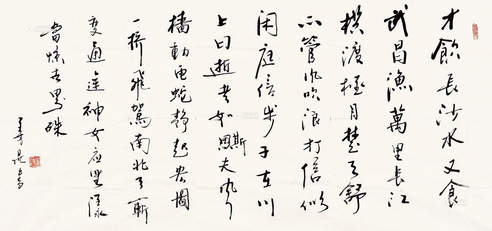 才飲長沙水又食
武昌漁萬里長江
橫渡極目楚天舒
不管風吹浪打信似
闲庭信步子在川
上曰逝者如斯夫風
樯動龜蛇靜起宏圖
一橋飛駕南北天塹
變通途神女應無恙
當惊世界殊